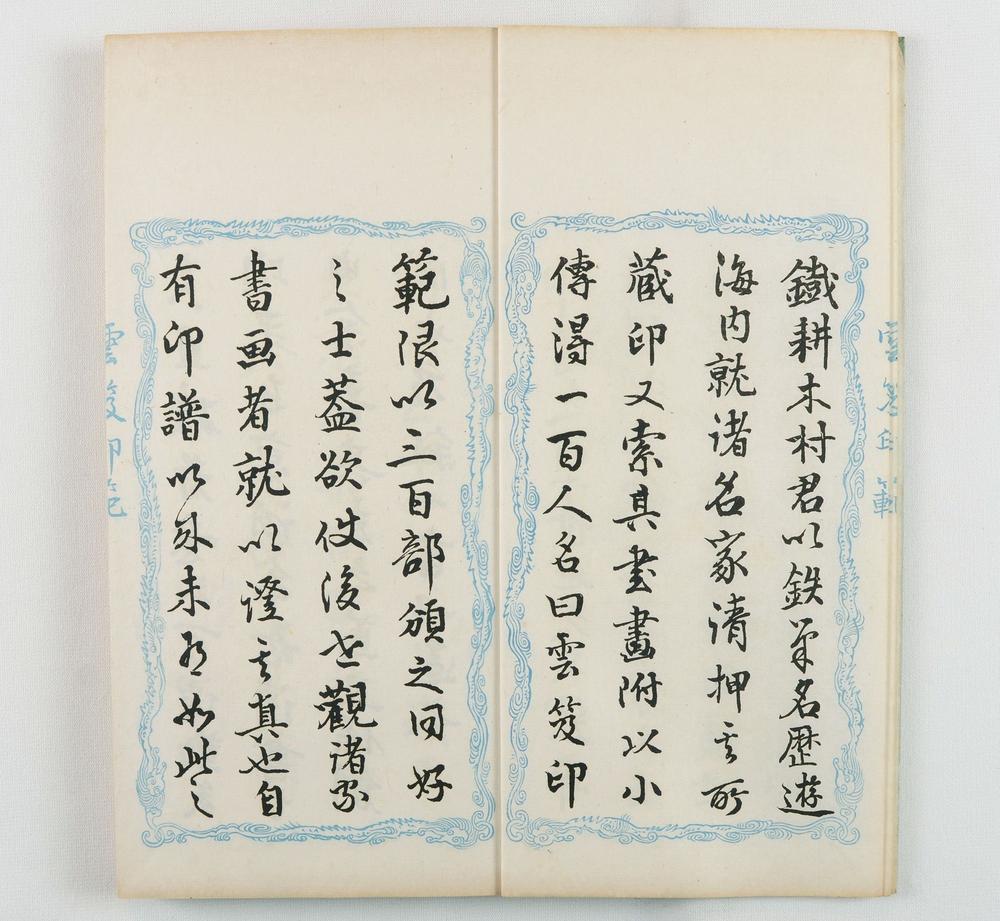 鐡耕木村君以鉄筆名歴遊
海内就诸名家請押其所
蔵印又索其書畫附以小
傳得一百人名曰雲笈印
範限以三百部頒之同好
之士蓋欲使後世觀诸家
書画者就以證其真也自
有印譜以来未有如此之
雲笈印範
雲笈印範